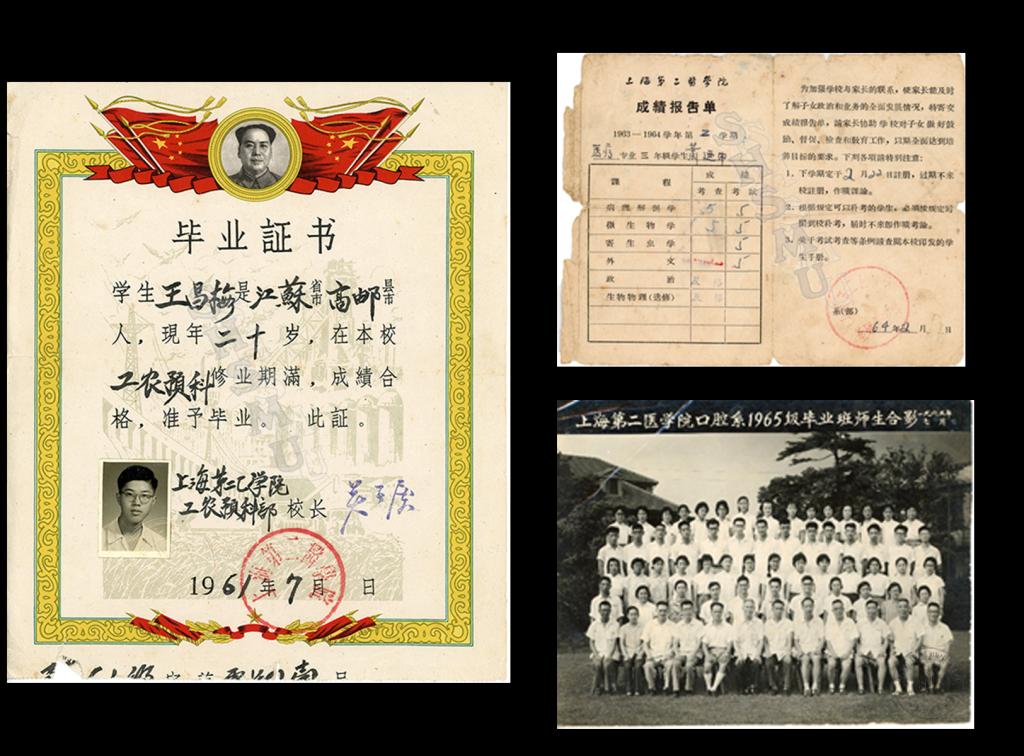 毕业証书
学生王昌梅是江蘇省市高邮县市
人，現年二十岁，在本校
工农預科修业期滿，成績合
格，准予毕业。此証。
上海第二乙学院
工农預科部 校长
1961年7月 日
上海第二醫学院
成績报告单
1963—1964学年第2学期
医疗专业三年級学生
課程 成績
考查 考試
病理解剖学 5 5
微生物学 5 5
寄生虫学 5
外文 5
政治
生物物理(选修)
为加强学校与家长的联系，使家长能及时
了解子女政治和业务的全面发展情况，特寄交
成績报告单，請家长协助学校对子女做好鼓
励、督促、检查和教育工作，以期全面达到培
养目标的要求。下列各項請特別注意：
1. 下学期定于2月22日註册，过期不来
校註册，作曠課論。
2. 根据规定可以补考的学生，必須按規定时
間到校补考，届时不来即作曠考論。
3. 关于考試考查等条例請查閱本校印发的学
生手册。
系(部)
64年2月 日
上海第二医学院口腔系1965級毕业班师生合影 一九六五年七月
SHSMU